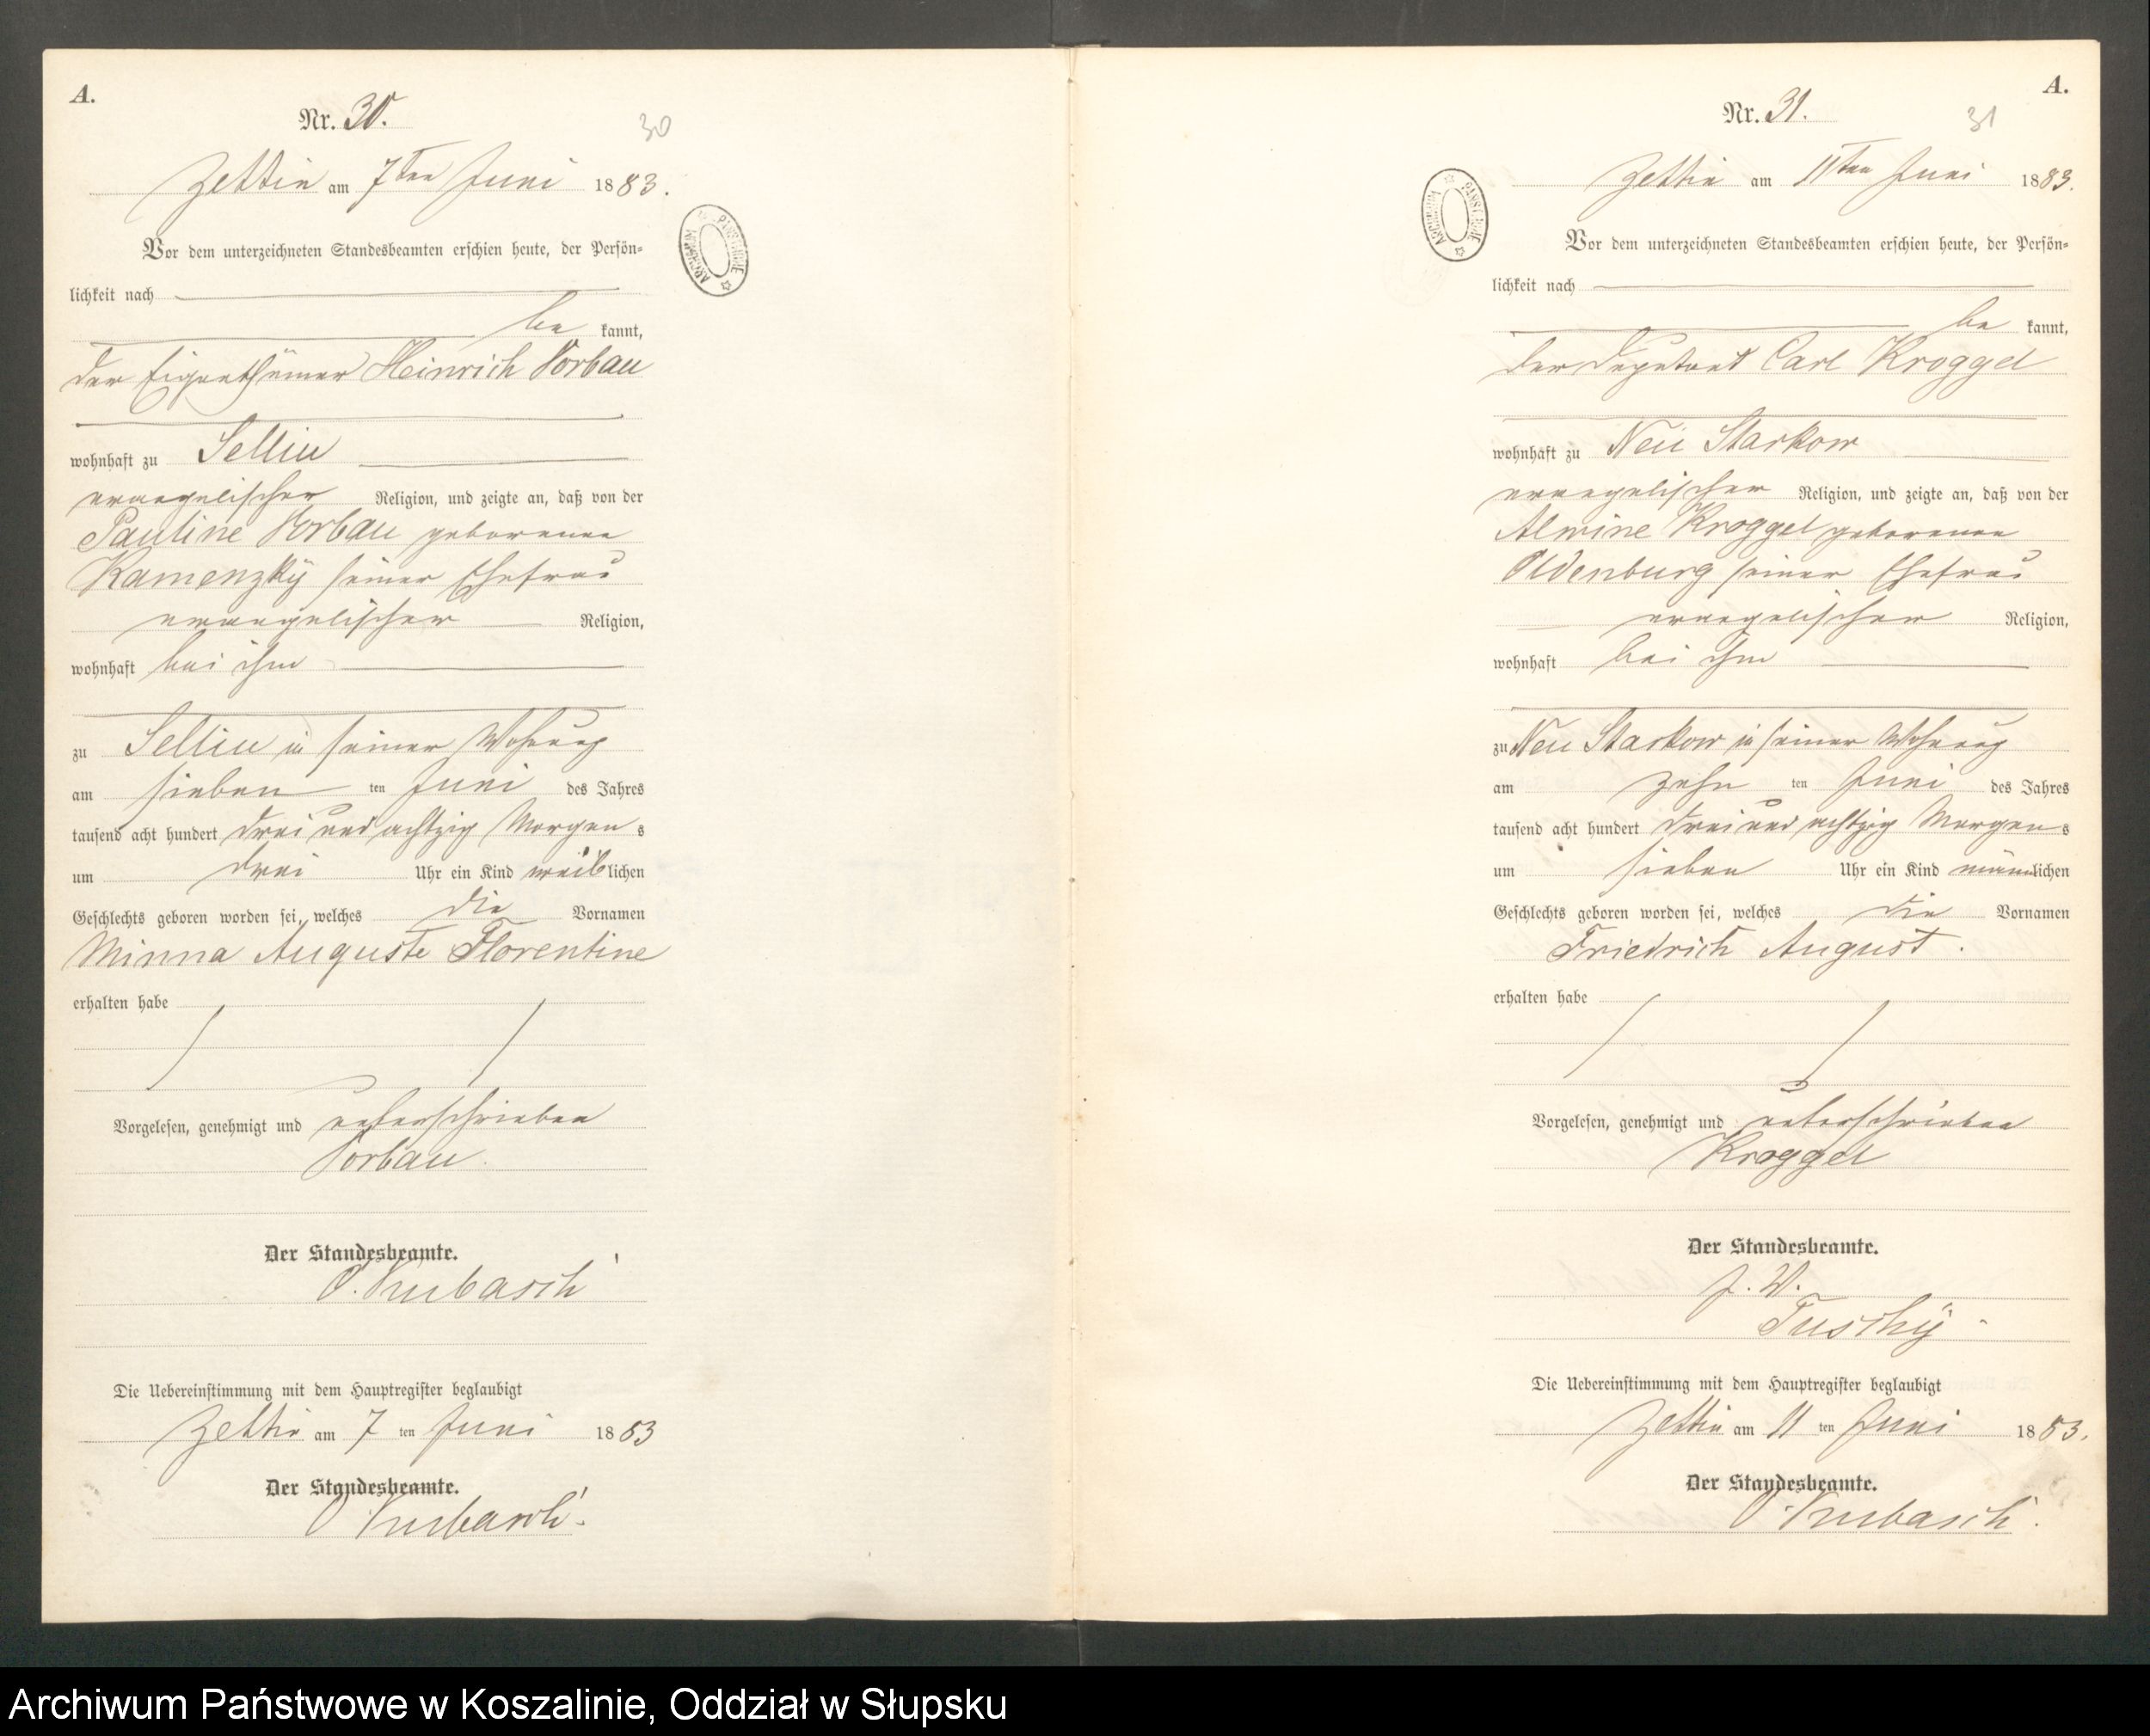 A.
Nr. 30.
30
Zettin am 7ten Juni 1883.
Vor dem unterzeichneten Standesbeamten erschien heute, der Persön-
lichkeit nach
be kannt,
der Eigenthümer Heinrich Vorbau
wohnhaft zu Sellin
evangelischer Religion, und zeigte an, daß von der
Pauline Vorbau geborenen
Kamenzky seiner Ehefrau
evangelischer Religion,
wohnhaft bei ihm
zu Sellin in seiner Wohnung
am sieben ten Juni des Jahres
tausend acht hundert drei und achtzig Morgens
um drei Uhr ein Kind weiblichen
Geschlechts geboren worden sei, welches die Vornamen
Minna Auguste Florentine
erhalten habe
Vorgelesen, genehmigt und unterschrieben
Vorbau.
Der Standesbeamte.
O. Kubasch
Die Uebereinstimmung mit dem Hauptregister beglaubigt
Zettin am 7 ten Juni 1883
Der Standesbeamte.
O Kubasch.
ARCHIWUM PAŃSTWOWE
A.
Nr. 31.
31
Zettin am 11ten Juni 1883.
ARCHIWUM PAŃSTWOWE
Vor dem unterzeichneten Standesbeamten erschien heute, der Persön-
lichkeit nach
be kannt,
der Deputant Carl Kroggel
wohnhaft zu Neu Starkow
evangelischer Religion, und zeigte an, daß von der
Alwine Kroggel geborenen
Oldenburg seiner Ehefrau
evangelischer Religion,
wohnhaft bei ihm
zu Neu Starkow in seiner Wohnung
am zehn ten Juni des Jahres
tausend acht hundert drei und achtzig Morgens
um sieben Uhr ein Kind männlichen
Geschlechts geboren worden sei, welches die Vornamen
Friedrich August.
erhalten habe
Vorgelesen, genehmigt und unterschrieben
Kroggel
Der Standesbeamte.
J. V.
Tuschy
Die Uebereinstimmung mit dem Hauptregister beglaubigt
Zettin am 11 ten Juni 1883.
Der Standesbeamte.
O. Kubasch.
Archiwum Państwowe w Koszalinie, Oddział w Słupsku